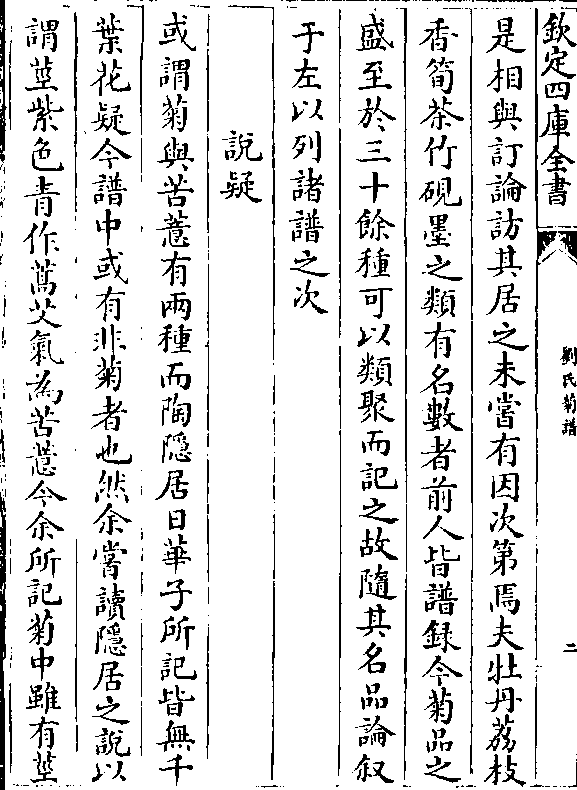 欽定四庫全書
劉氏菊譜
二
是相與訂論訪其居之未嘗有因次第焉夫牡丹荔枝
香筍茶竹硯墨之類有名數者前人皆譜録今菊品之
盛至於三十餘種可以類聚而記之故隨其名品論叙
于左以列諸譜之次
說疑
或謂菊與苦薏有兩種而陶隠居日華子所記皆無千
葉花疑今譜中或有非菊者也然余嘗讀隠居之說以
謂莖紫色青作蒿艾氣為苦薏今余所記菊中雖有莖